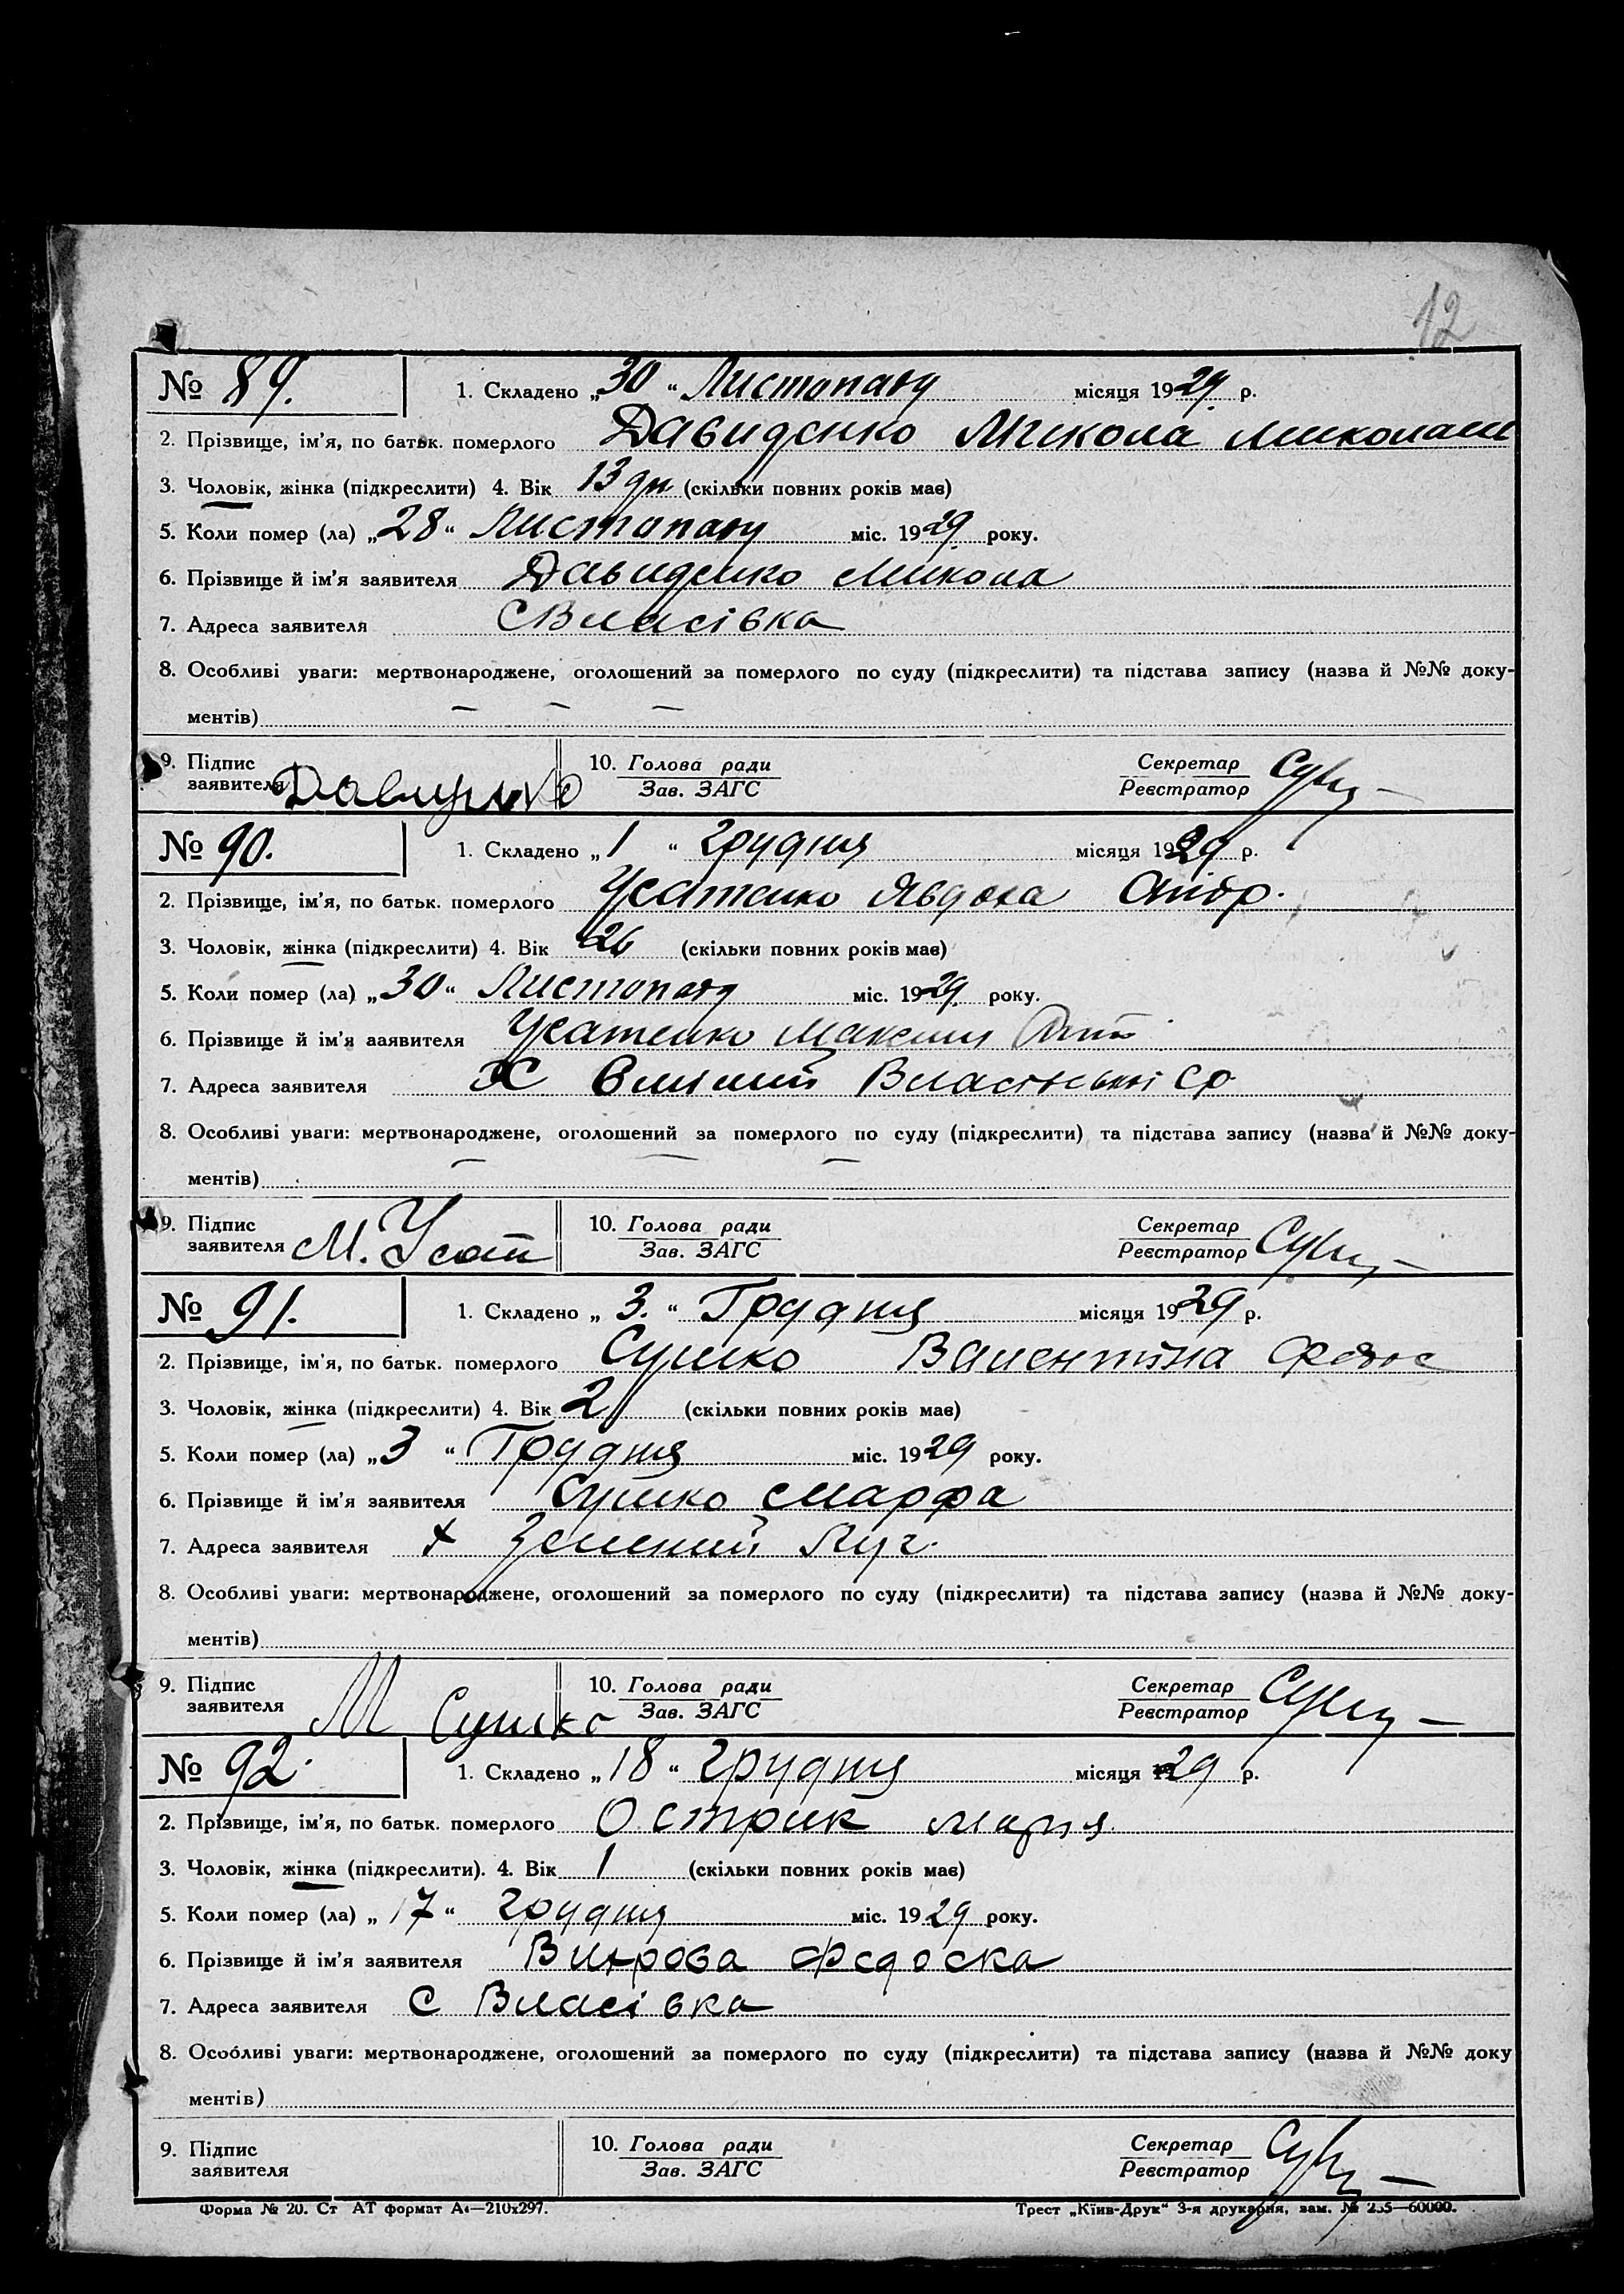 12
№ 89. 1. Складено „30“ Листопаду місяця 1929. р.
2. Прізвище, ім’я, по батьк. померлого Давиденко Микола Миколаів
3. Чоловік, жінка (підкреслити) 4. Вік 13 дн (скільки повних років має)
5. Коли помер (ла) „28“ Листопаду міс. 1929. року.
6. Прізвище й ім’я заявителя Давиденко Микола
7. Адреса заявителя С Власівка
8. Особливі уваги: мертвонароджене, оголошений за померлого по суду (підкреслити) та підстава запису (назва й №№ доку-
ментів)
9. Підпис 10. Голова ради Секретар
заявителя Давиденко Зав. ЗАГС Реєстратор
№ 90. 1. Складено „1“ Грудня місяця 1929 р.
2. Прізвище, ім’я, по батьк. померлого Усатенко Явдоха
3. Чоловік, жінка (підкреслити) 4. Вік 26 (скільки повних років має)
5. Коли помер (ла) „30“ Листопаду міс. 1929. року.
6. Прізвище й ім’я заявителя Усатенко Максим
7. Адреса заявителя Х Власівськоі ср
8. Особливі уваги: мертвонароджене, оголошений за померлого по суду (підкреслити) та підстава запису (назва й №№ доку-
ментів)
9. Підпис 10. Голова ради Секретар
заявителя М. Усат Зав. ЗАГС Реєстратор
№ 91. 1. Складено „3.“ Грудня місяця 1929 р.
2. Прізвище, ім’я, по батьк. померлого Сушко Валентина
3. Чоловік, жінка (підкреслити) 4. Вік 2 (скільки повних років має)
5. Коли помер (ла) „3“ Грудня міс. 1929 року.
6. Прізвище й ім’я заявителя Сушко Марфа
7. Адреса заявителя х Зелений Луг.
8. Особливі уваги: мертвонароджене, оголошений за померлого по суду (підкреслити) та підстава запису (назва й №№ доку-
ментів)
9. Підпис 10. Голова ради Секретар
заявителя М Сушко Зав. ЗАГС Реєстратор
№ 92. 1. Складено „18“ Грудня місяця 29 р.
2. Прізвище, ім’я, по батьк. померлого Острик Мария
3. Чоловік, жінка (підкреслити). 4. Вік 1 (скільки повних років має)
5. Коли помер (ла) „17“ Грудня міс. 1929 року.
6. Прізвище й ім’я заявителя Вихрова Федоска
7. Адреса заявителя С Власівка
8. Особливі уваги: мертвонароджене, оголошений за померлого по суду (підкреслити) та підстава запису (назва й №№ доку
ментів)
9. Підпис 10. Голова ради Секретар
заявителя Зав. ЗАГС Реєстратор
Форма № 20. Ст АТ формат А4—210х297. Трест „Київ-Друк“ 3-я друкарня, зам. № 255—60000.